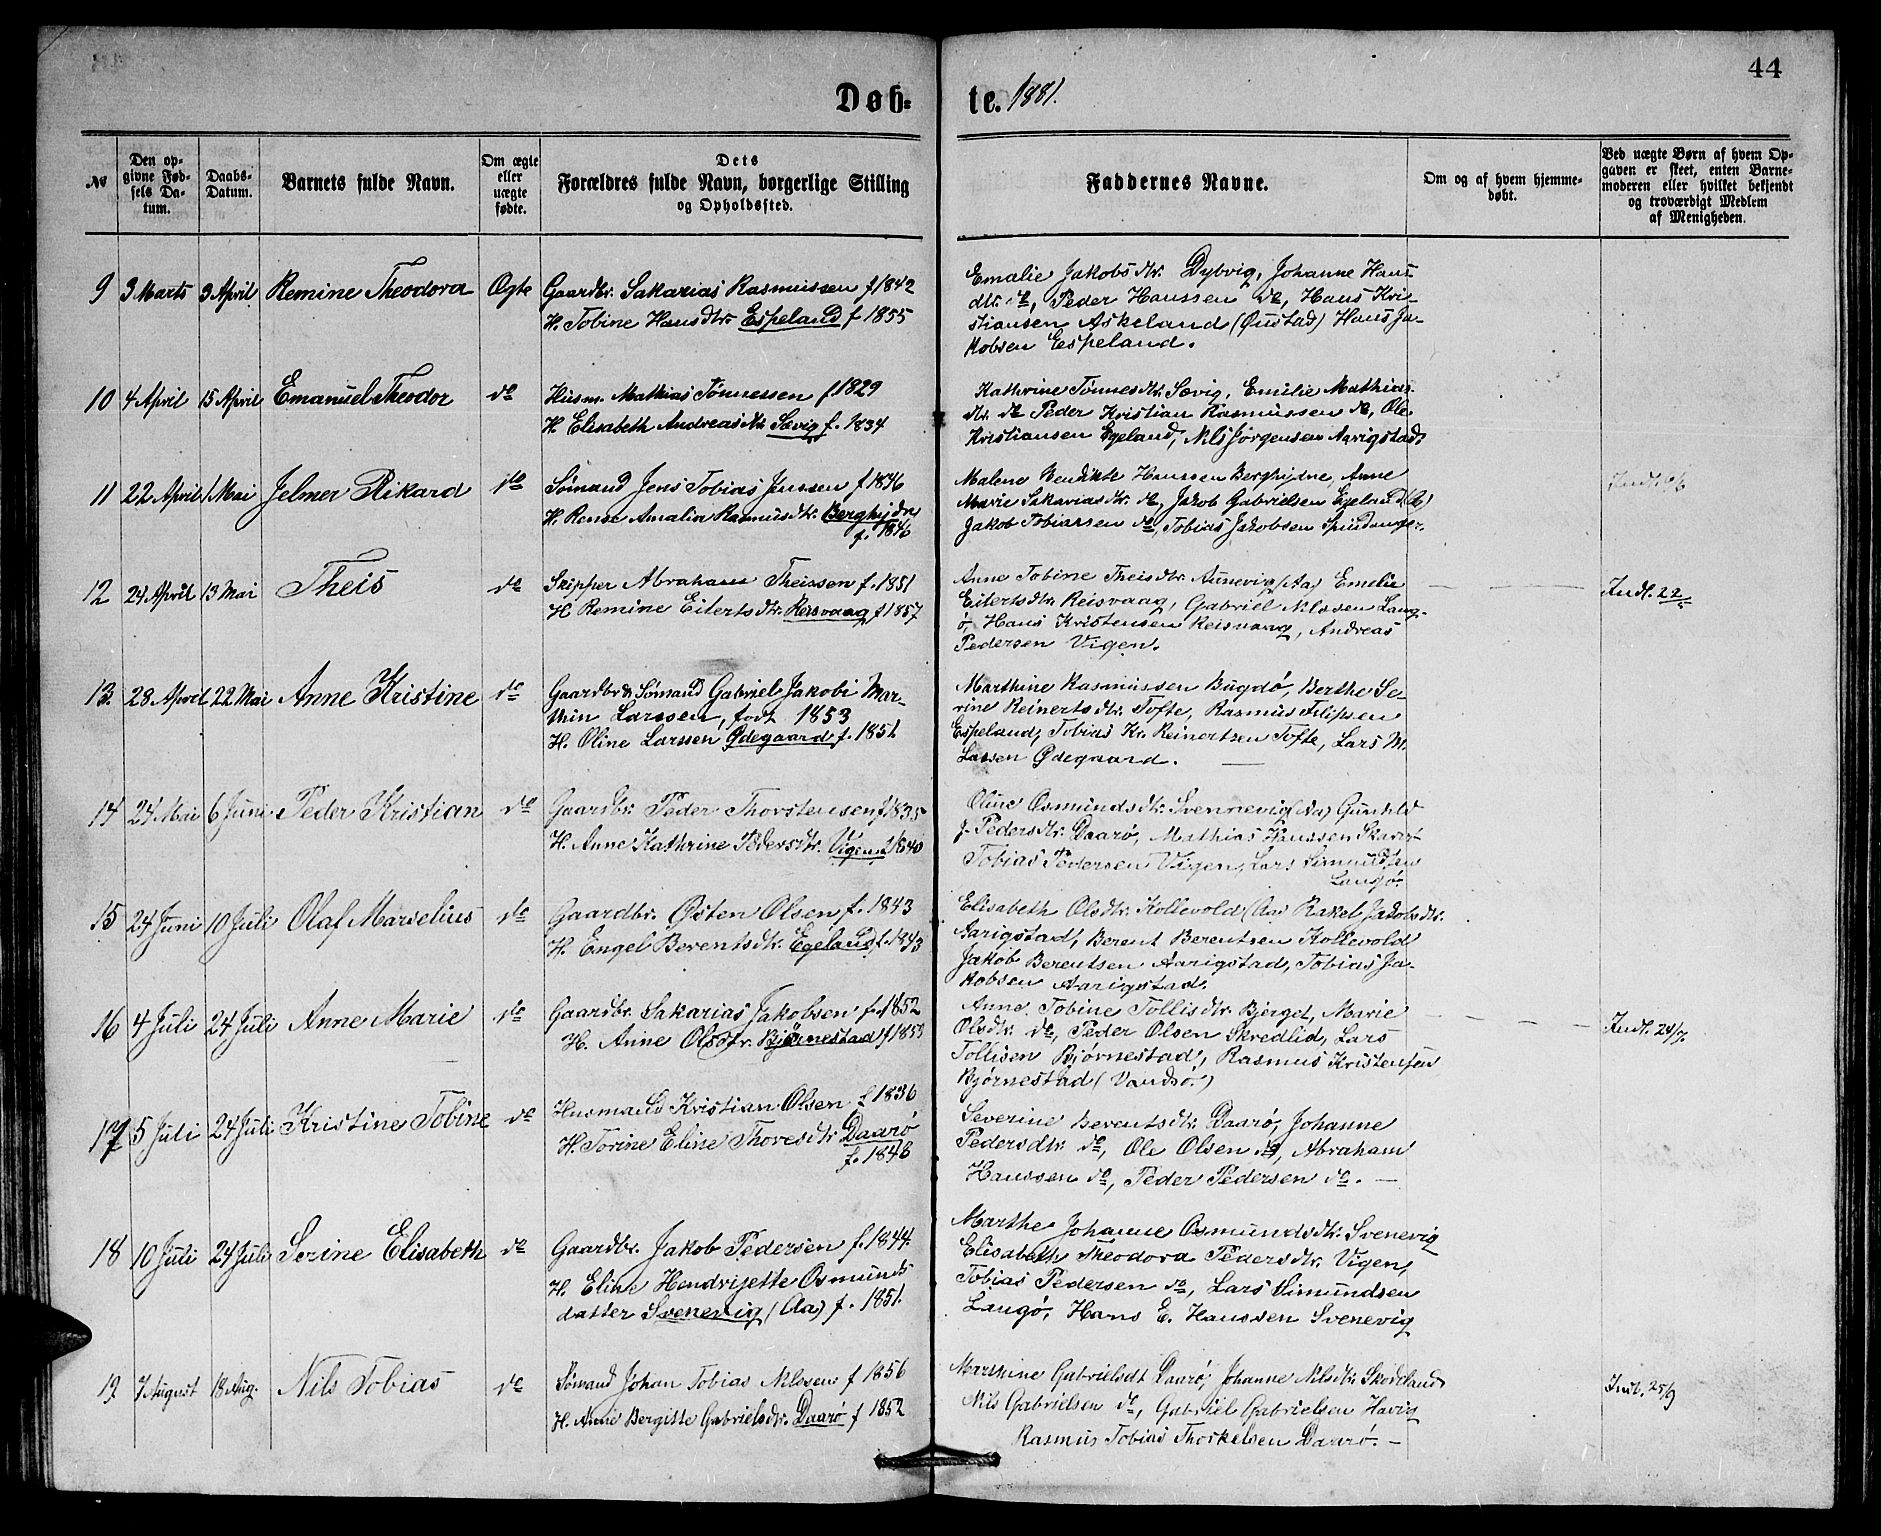 44
Døb-
te. 1881.
No
Den op-
givne Fød-
sels Da-
tum.
Daabs-
Datum.
Barnets fulde Navn.
Om ægte
eller
uægte
fødte.
Dets
Forældres fulde Navn, borgerlige Stilling
og Opholdssted.
Faddernes Navne.
Om og af hvem hjemme-
døbt.
Ved uægte Børn af hvem Op-
gaven er skeet, enten Barne-
moderen eller hvilket bekjendt
og troværdigt Medlem
af Menigheden.
9 3 Marts 3 April Remine Theodora Ægte Gaardbr. Sakarias Rasmussen f 1842
H. Tobine Hansdtr. Espeland f 1855
Emalie Jakobsdtr. Dybvig, Johanne Hans
dtr. do, Peder Hanssen do, Hans Kri-
stiansen Askeland (Øustad) Hans Ja-
kobsen Espeland.
10 4 April 15 April Emanuel Theodor do Husm. Mathias Tønnessen f 1829
H. Elisabeth Andreasdtr. Sævig f. 1834
Kathrine Tønnesdtr. Sævig, Emilie Mathias
dtr. do Peder Kristian Rasmussen do, Ole
Kristiansen Egeland, Nils Jørgensen Aarigstad
11 22 April 1 Mai Jelmer Rikard do Sømand Jens Tobias Jenssen f 1846
H. Rense Amalia Rasmusdtr. Berghijdne
f. 1846
Malene Bendikte Hanssen Berghijdne, Anne
Marie Sakariasdtr. do, Jakob Gabrielsen Egeland (A)
Jakob Tobiassen do, Tobias Jakobsen Spindanger.
12 24 April 13 Mai Theis do Skipper Abraham Theissen f. 1851
H. Remine Eilertsdtr. Reisvaag f 1857
Anne Tobine Theisdtr. Aunevig (Aa) Emelie
Eilertsdtr. Reisvaag, Gabriel Nilssen Lang-
ø, Hans Kristensen Reisvaag, Andreas
Pedersen Vigen.
Indl. 22/5
13. 28 April 22 Mai Anne Kristine do Gaardbr & Sømand Gabriel Jakobi Mar-
thin Larssen, født 1853
H. Oline Larssen Ødegaard f. 1851
Marthine Rasmussen Bugdø, Berthe Se-
rine Reinertsdtr. Tofte, Rasmus Filipsen
Espeland, Tobias Kr. Reinertsen Tofte, Lars M.
Larsen Ødegaard.
14 24 Mai 6 Juni Peder Kristian do Gaardbr. Peder Thorstensen f 1835
H. Anne Kathrine Pedersdtr. Vigen f 1840
Oline Osmundsdtr. Svennevig (Aa) Gunhild
J. Pedersdtr. Daarø, Mathias Hanssen
Tobias Pedersen Vigen, Lars Simundsen
Langø.
15 24 Juni 10 Juli Olaf Marselius do Gaardbr. Østen Olsen f. 1843
H. Engel Berentsdtr. Egeland f. 1843
Elisabeth Olsdtr. Kollevold (Aa) Rakel Jakobsdtr.
Aarigstad, Berent Berentsen Kollevold
Jakob Berentsen Aarigstad, Tobias Ja-
kobsen Aarigstad.
16 4 Juli 24 Juli Anne Marie do Gaardbr. Sakarias Jakobsen f. 1852
H. Anne Olsdtr. Bjørnestad f 1853
Anne Tobine Tollisdtr. Bjerget, Marie
Olsdtr. do, Peder Olsen Skredlid, Lars
Tollisen Bjørnestad, Rasmus Kristensen
Bjørnestad (Vandsø.)
Indl. 24/7.
17 5 Juli 24 Juli Kristine Tobine do Husmand Kristian Olsen f 1836
H. Torine Eline Thoresdtr. Daarø
f. 1846
Severine Berentsdtr. Daarø, Johanne
Pedersdtr. do, Ole Olsen do, Abraham
Hanssen do, Peder Pedersen do.
18 10 Juli 24 Juli Serine Elisabeth do Gaardbr. Jakob Pedersen f. 1844.
H. Eline Hendrijette Osmunds
datter Svenevig (Aa) f. 1851.
Marthe Johanne Osmundsdtr. Svenevig
Elisabeth Theodora Pedersdtr. Vigen,
Tobias Pedersen do, Lars Simundsen
Langø, Hans E. Hanssen Svenevig
19 7 August 18 Aug. Nils Tobias do Sømand Johan Tobias Nilssen f 1856
H. Anne Bergitte Gabrielsdtr. Daarø f 1852
Marthine Gabrielsdt Daarø, Johanne Nilsdtr Skodeland
Nils Gabrielsen do, Gabriel Gabrielsen Havig
Rasmus Tobias Thorkelsen Daarø.
Indl. 25/9